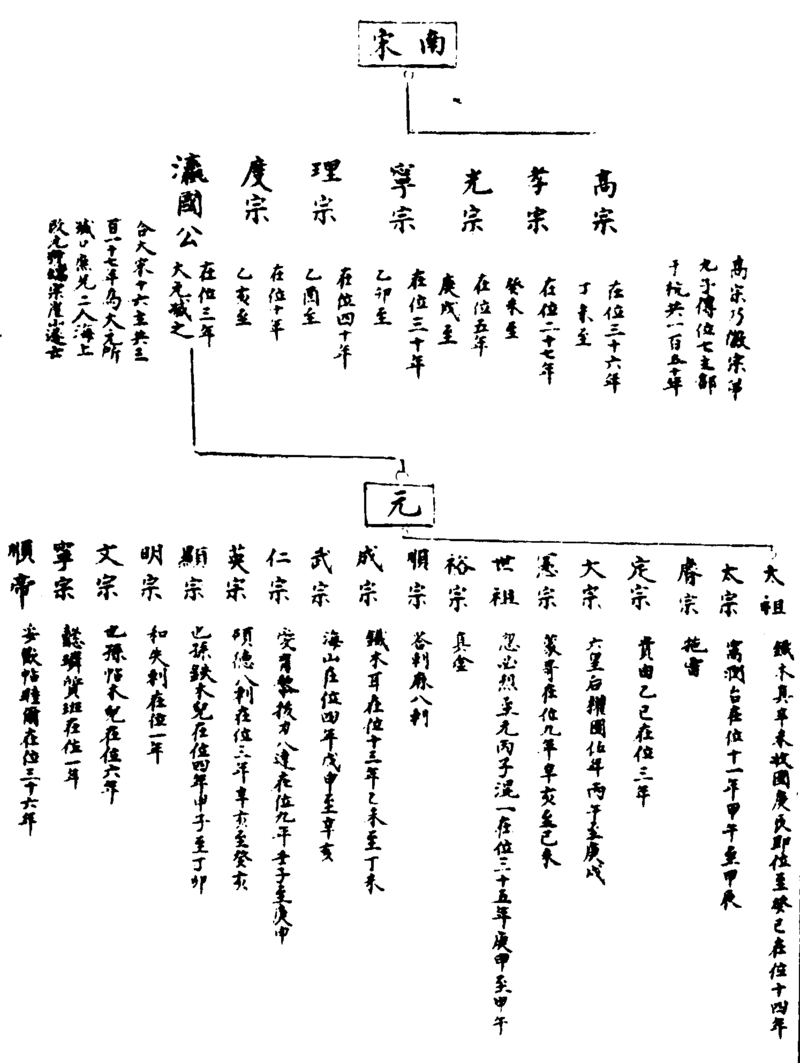 南宋
高宗乃徽宗第
九子傳位七主都
于杭共一百五十年
高宗
丁未至
在位三十六年
孝宗
癸未至
在位二十七年
光宗
庚戌至
在位五年
寧宗
乙卯至
在位三十年
理宗
乙酉至
在位四十年
度宗
乙亥至
在位十年
瀛國公
在位三年
大元滅之
合大宋十六主共三
百一十七年為大元所
滅 二人海上
改元 崖山遂亡
元
太祖
鐵木真辛未收國庚辰即位至癸巳在位十四年
太宗
窩濶台在位十一年甲午至甲辰
睿宗
拖雷
定宗
貴由乙巳在位三年
大宗
六皇后擢國伍年丙午至庚戌
憲宗
蒙哥在位九年辛亥至己未
世祖
忽必烈至元丙子混一在位三十五年庚申至甲午
裕宗
真金
順宗
答剌麻八剌
成宗
鐵木耳在位十三年乙未至丁未
武宗
海山在位四年戊申至辛亥
仁宗
愛育黎拔力八達在位九年壬子至庚申
英宗
碩德八剌在位三年辛亥至癸亥
顯宗
也孫鉄木兒在位四年甲子至丁卯
明宗
和失剌在位一年
文宗
也孫帖木兒在位六年
寧宗
懿璘質班在位一年
順帝
妥歡帖睦爾在位三十六年